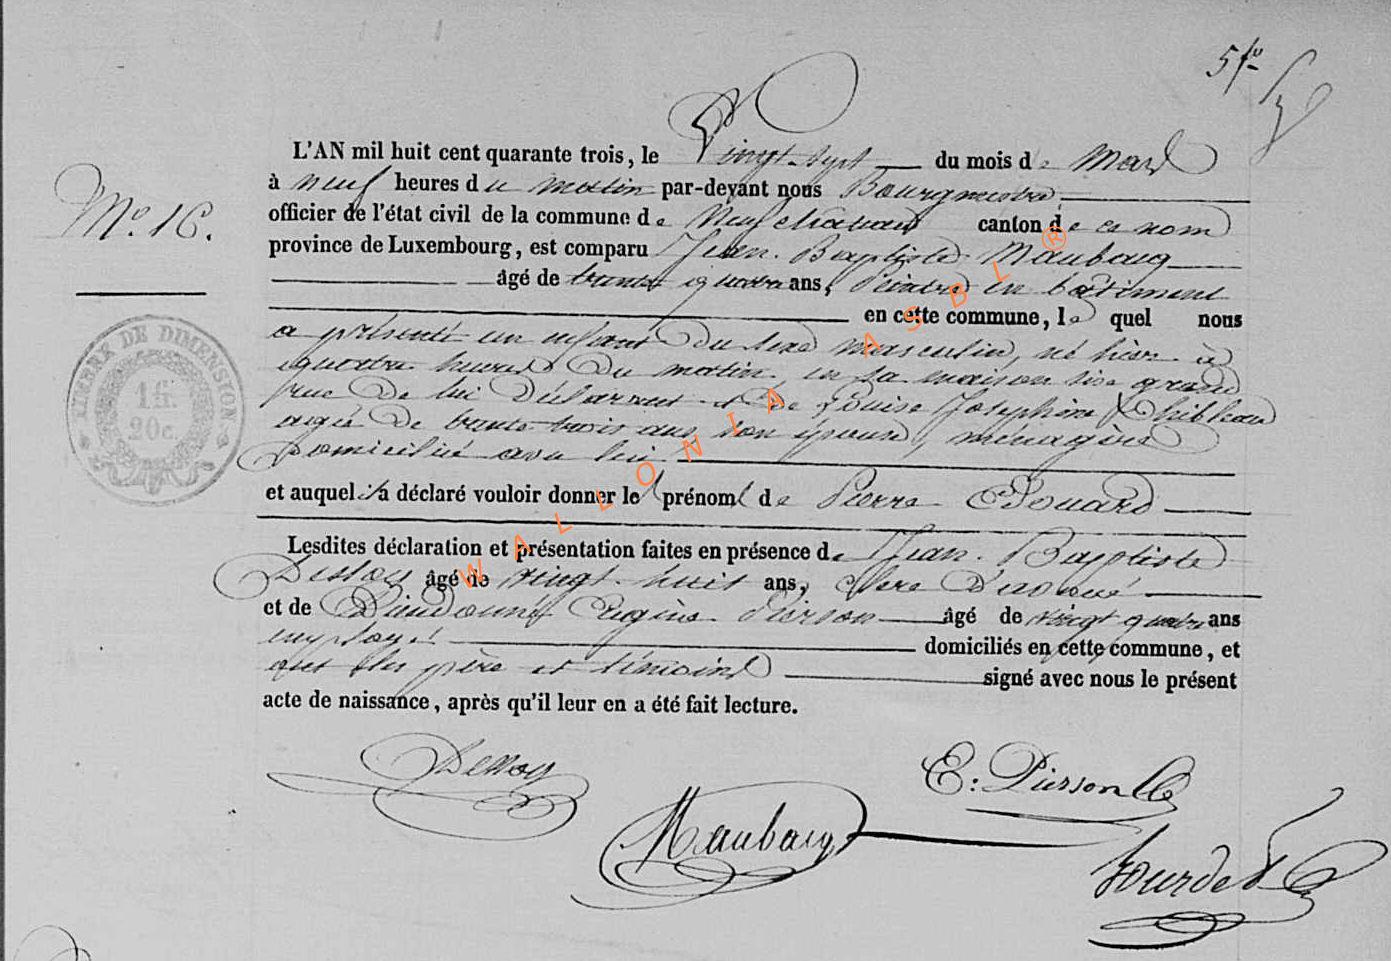 5 fo
L'AN mil huit cent quarante trois, le Vingt-Sept du mois de Mars
à neuf heures du matin par-devant nous Bourgmestre
officier de l'état civil de la commune de Neufchateau canton de ce nom
province de Luxembourg, est comparu Jean-Baptiste Maubacq
âgé de trente quatre ans, Peintre en bâtiment
en cette commune, le quel nous
a présenté un enfant du sexe masculin, né hier à
quatre heures du matin, en sa maison sise grand
rue de lui déclarant et de Louise Josephine
agée de trente trois ans, son épouse, ménagère
domiciliée avec lui
et auquel il a déclaré vouloir donner les prénoms de Pierre Edouard
Lesdites déclaration et présentation faites en présence de Jean-Baptiste
Dessoy âgé de vingt-huit ans, Clerc d'avoué
et de Dieudonné Eugène Pierson âgé de vingt quatre ans
employé domiciliés en cette commune, et
ont les père et témoins signé avec nous le présent
acte de naissance, après qu'il leur en a été fait lecture.
No. 16.
TIMBRE DE DIMENSION
1 fr.
20 c.
WALLONIA ASBL ®
Dessoy
E: Pierson
Maubacq